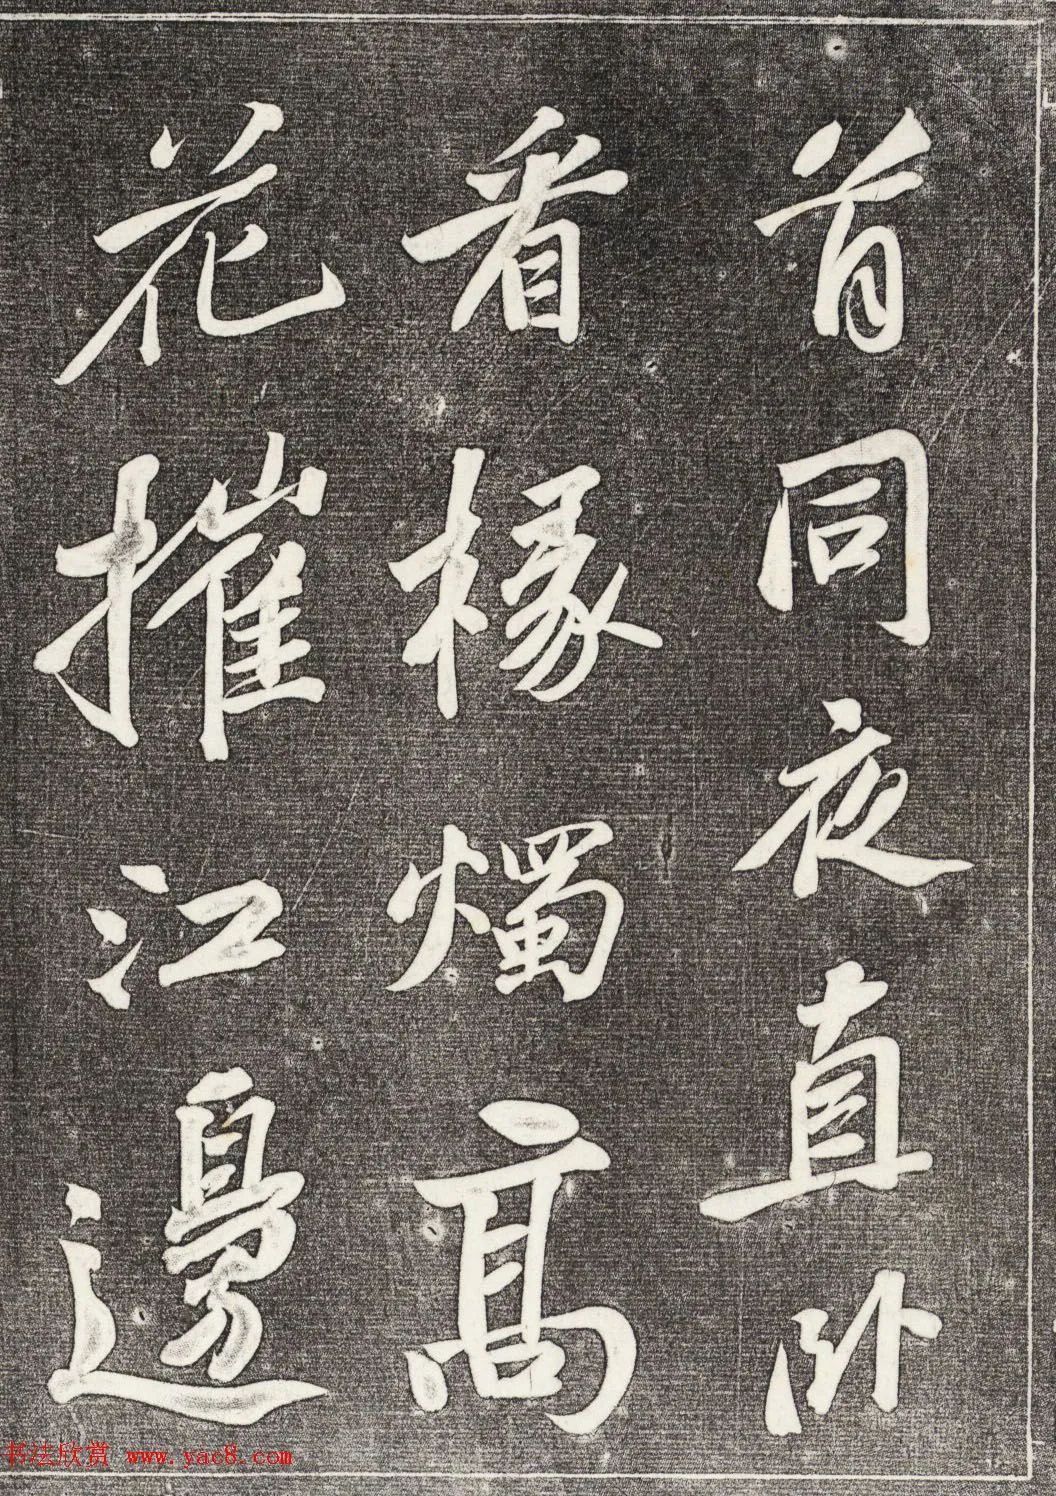 首同夜直卧
看椽燭高
花摧江邊
书法欣赏 www.yac8.com